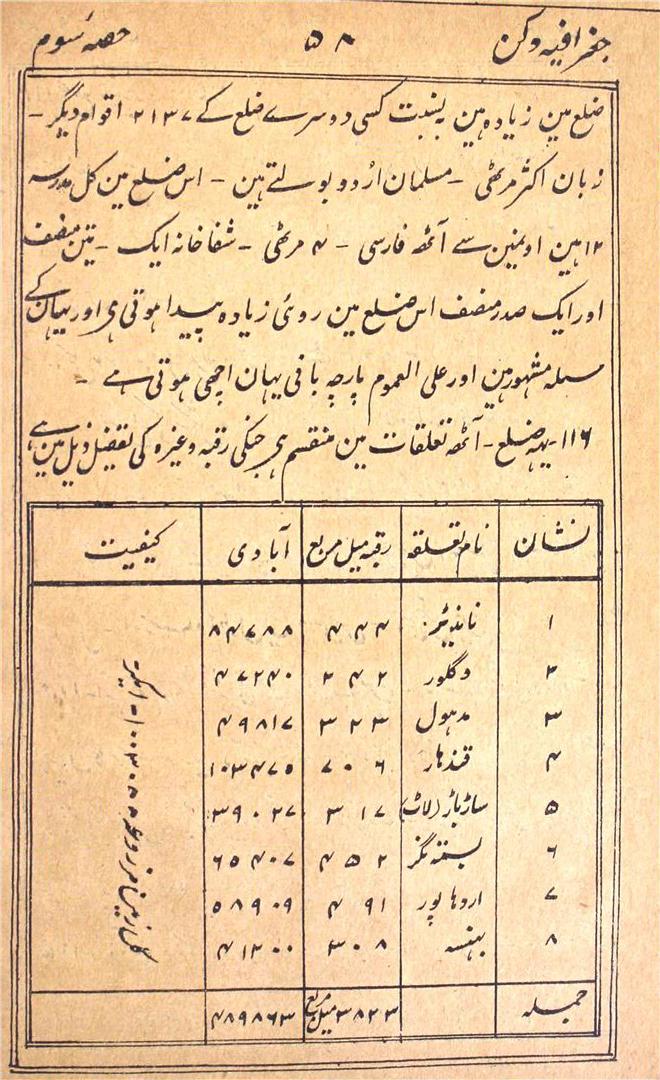 جغرافیہ دکن ۵۸ حصہ سوم
ضلع مین زیادہ ہین بہ نسبت کسی دوسرے ضلع کے ۲۱۳۷ اقوام دیگر ۔
زبان اکثر مرہٹی ۔ مسلمان اردو بولتے ہین ۔ اس ضلع مین کل مدرسہ
۱۲ ہین اونمین سے آٹھ فارسی ۔ ۴ مرہٹی ۔ شفاخانہ ایک ۔ تین منصف
اور ایک صدر منصف اس ضلع مین روئی زیادہ پیدا ہوتی ہی اور یہان کے
سیلہ مشہور ہین اور علی العموم پارچہ بافی یہان اچھی ہوتی ہے ۔
۱۱۶ ۔ یہہ ضلع ۔ آٹھ تعلقات مین منقسم ہی جنکی رقبہ وغیرہ کی تفصیل ذیل مین ہے
نشان نام تعلقہ رقبہ میل مربع آبادی کیفیت
۱ نانڈیڑ ۴۴۴ ۸۴۷۸۸
۲ دگلور ۲۴۲ ۴۷۲۴۰
۳ مدہول ۳۲۳ ۴۹۸۱۷
۴ قندہار ۷۰۶ ۱۰۳۴۷۵
۵ ساڑباڑ (لاٹ) ۳۱۷ ۳۹۰۲۷
۶ بستہ نگر ۴۵۲ ۶۵۴۰۷
۷ اردہاپور ۴۹۱ ۵۸۹۰۹
۸ بہنسہ ۳۰۸ ۴۱۲۰۰
کل زمین مزروعہ ایکڑ
جملہ ۳۸۲۳ میل مربع ۴۸۹۸۶۳